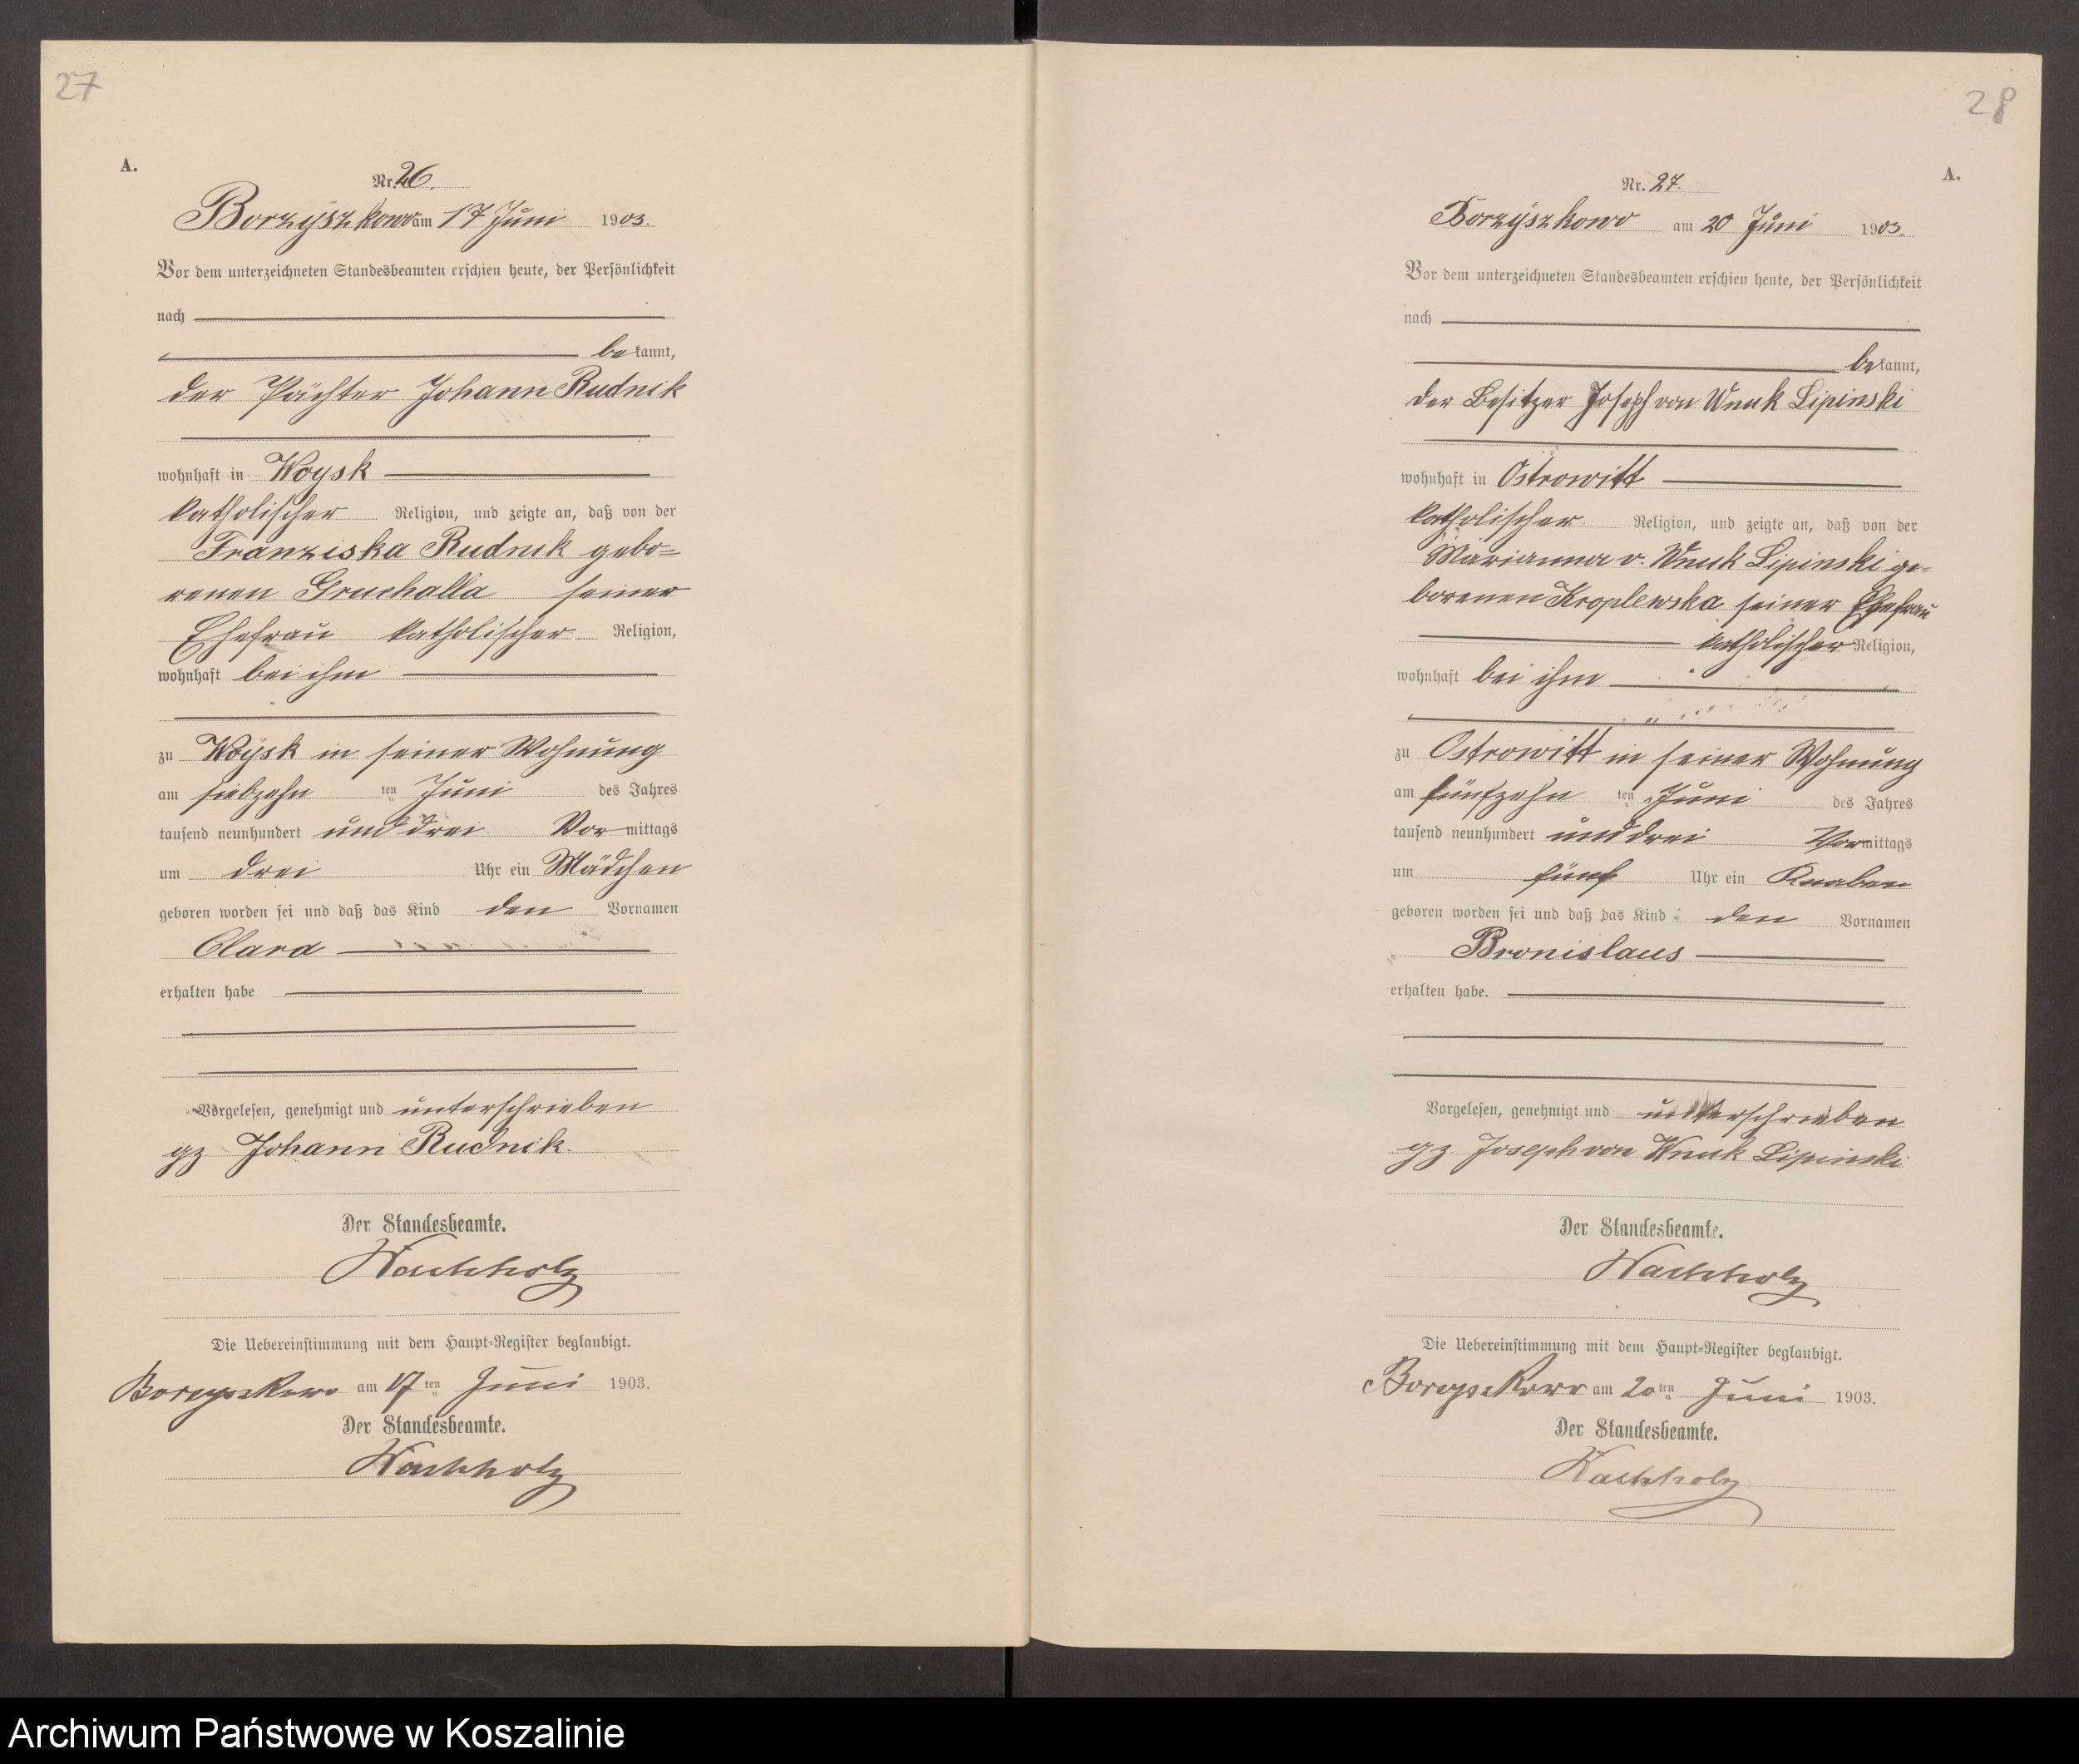 27
A.
Nr. 26.
Borzyszkowo am 17 Juni 1903.
Vor dem unterzeichneten Standesbeamten erschien heute, der Persönlichkeit
nach
bekannt,
der Pächter Johann Rudnik
wohnhaft in Woysk
katholischer Religion, und zeigte an, daß von der
Franziska Rudnik gebo=
renen Gruchalla seiner
Ehefrau katholischer Religion,
wohnhaft bei ihm
zu Woysk in seiner Wohnung
am siebzehn ten Juni des Jahres
tausend neunhundert und drei Vormittags
um drei Uhr ein Mädchen
geboren worden sei und daß das Kind den Vornamen
Clara
erhalten habe
Vorgelesen, genehmigt und unterschrieben
gz Johann Rudnik.
Der Standesbeamte.
Wachholz
Die Uebereinstimmung mit dem Haupt=Register beglaubigt.
Borzyszkowo am 17ten Juni 1903.
Der Standesbeamte.
Wachholz
28
A.
Nr. 27.
Borzyszkowo am 20 Juni 1903.
Vor dem unterzeichneten Standesbeamten erschien heute, der Persönlichkeit
nach
bekannt,
der Besitzer Joseph von Wnuk Lipinski
wohnhaft in Ostrowitt
katholischer Religion, und zeigte an, daß von der
Marianna v. Wnuk Lipinski ge-
borenen Kroplewska seiner Ehefrau
katholischer Religion,
wohnhaft bei ihm
zu Ostrowitt in seiner Wohnung
am fünfzehn ten Juni des Jahres
tausend neunhundert und drei Vormittags
um fünf Uhr ein Knaben
geboren worden sei und daß das Kind den Vornamen
Bronislaus
erhalten habe.
Vorgelesen, genehmigt und unterschrieben
gz. Joseph von Wnuk Lipinski
Der Standesbeamte.
Wachholz
Die Uebereinstimmung mit dem Haupt=Register beglaubigt.
Borzyszkowo am 20ten Juni 1903.
Der Standesbeamte.
Wachholz
Archiwum Państwowe w Koszalinie